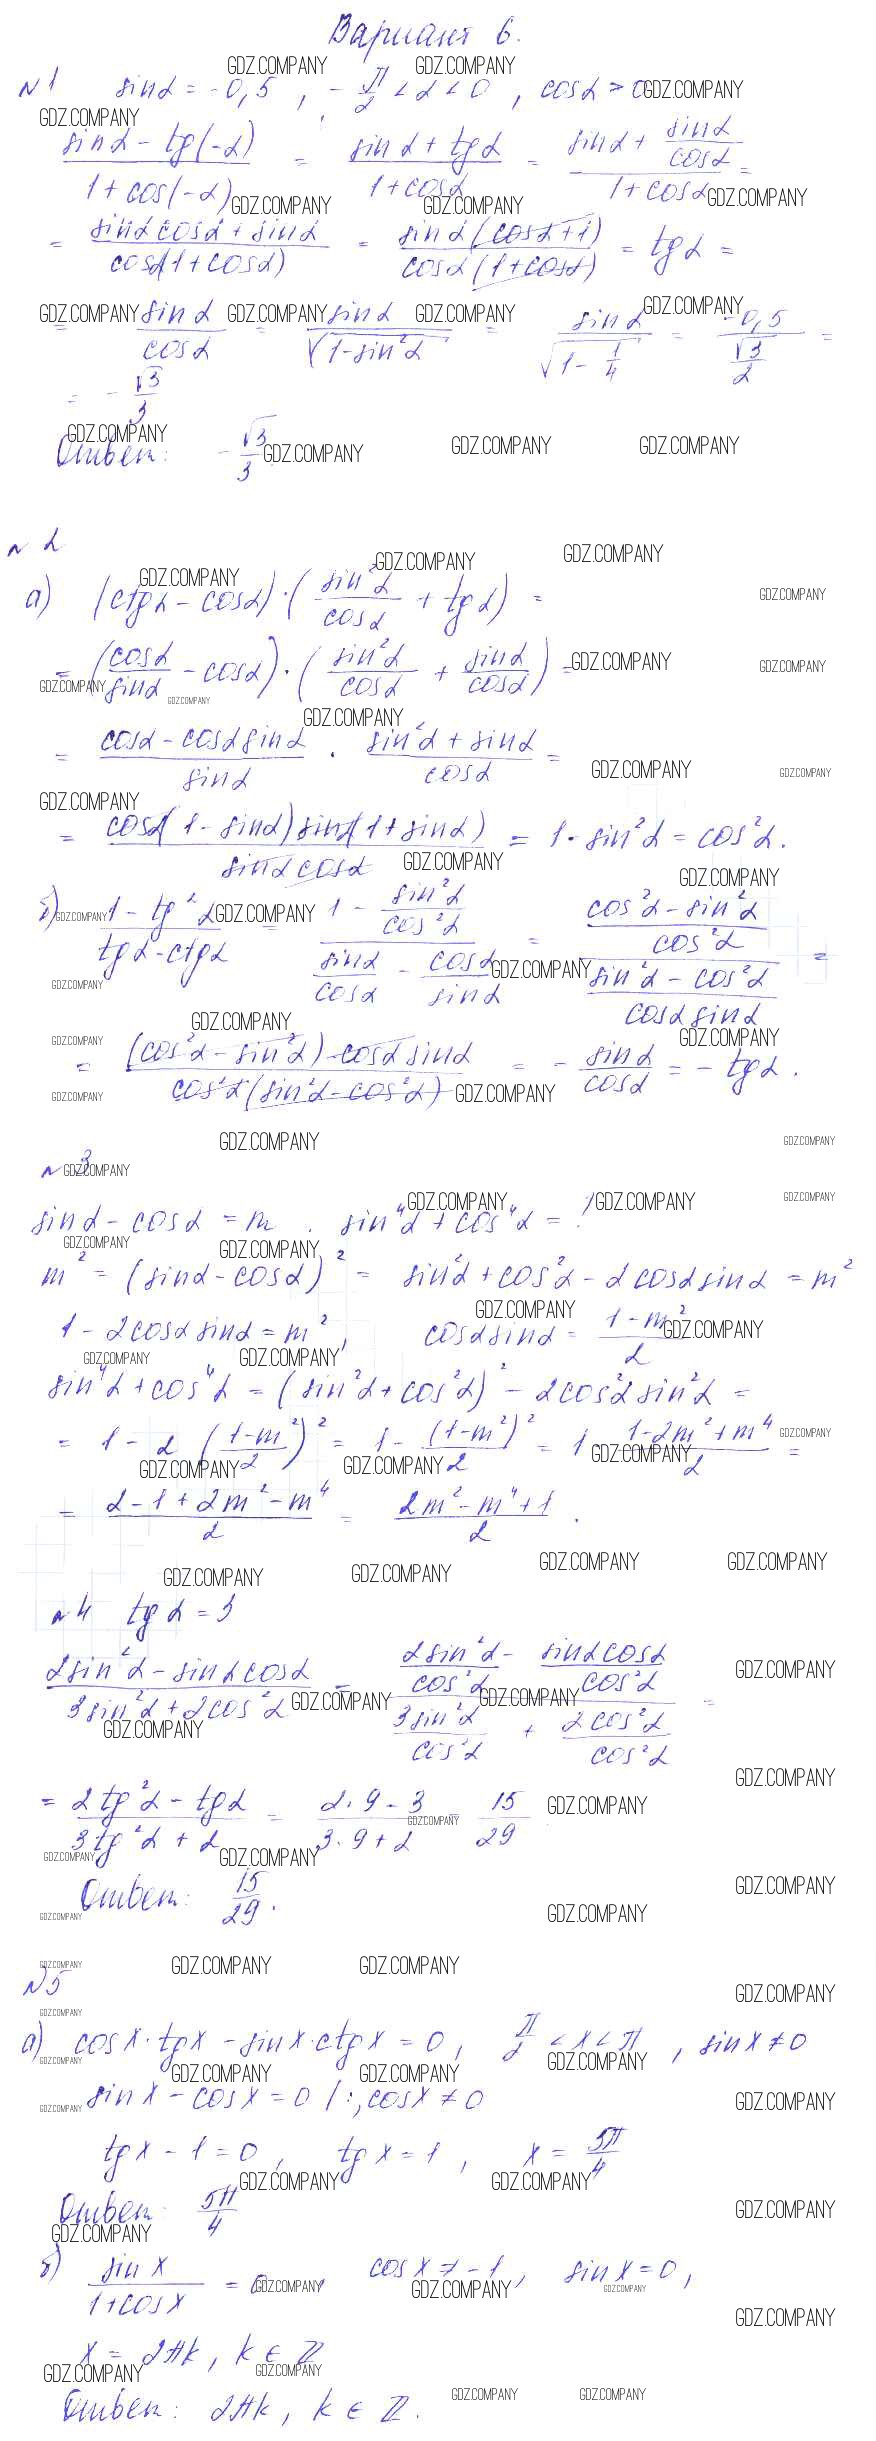 Вариант 6.
№1 sinα = -0,5 , -π/2 < α < 0 , cosα > 0
(sinα - tg(-α))/(1 + cos(-α)) = (sinα + tgα)/(1 + cosα) = (sinα + sinα/cosα)/(1 + cosα) =
= (sinα cosα + sinα)/(cosα(1 + cosα)) = (sinα(cosα + 1))/(cosα(1 + cosα)) = tgα =
= sinα/cosα = sinα/√(1 - sin²α) = sinα/√(1 - 1/4) = (-0,5)/(√3/2) =
= -√3/3
Ответ: -√3/3.
№2
а) (ctgα - cosα)·(sin²α/cosα + tgα) =
= (cosα/sinα - cosα)·(sin²α/cosα + sinα/cosα) =
= (cosα - cosα sinα)/sinα · (sin²α + sinα)/cosα =
= (cosα(1 - sinα) sinα(1 + sinα))/(sinα cosα) = 1 - sin²α = cos²α.
б) (1 - tg²α)/(tgα - ctgα) = (1 - sin²α/cos²α)/(sinα/cosα - cosα/sinα) = ((cos²α - sin²α)/cos²α)/((sin²α - cos²α)/(cosα sinα)) =
= ((cos²α - sin²α)·cosα sinα)/(cos²α(sin²α - cos²α)) = -sinα/cosα = -tgα.
№3
sinα - cosα = m . sin⁴α + cos⁴α = ?
m² = (sinα - cosα)² = sin²α + cos²α - 2cosα sinα = m²
1 - 2cosα sinα = m², cosα sinα = (1 - m²)/2
sin⁴α + cos⁴α = (sin²α + cos²α)² - 2cos²α sin²α =
= 1 - 2((1 - m²)/2)² = 1 - (1 - m²)²/2 = 1 - (1 - 2m² + m⁴)/2 =
= (2 - 1 + 2m² - m⁴)/2 = (2m² - m⁴ + 1)/2 .
№4 tgα = 3
(2sin²α - sinα cosα)/(3sin²α + 2cos²α) = (2sin²α/cos²α - sinα cosα/cos²α)/(3sin²α/cos²α + 2cos²α/cos²α) =
= (2tg²α - tgα)/(3tg²α + 2) = (2·9 - 3)/(3·9 + 2) = 15/29
Ответ: 15/29.
№5
а) cosx·tgx - sinx·ctgx = 0, π/2 < x < π , sinx ≠ 0
sinx - cosx = 0 /:, cosx ≠ 0
tgx - 1 = 0, tgx = 1, x = 5π/4
Ответ: 5π/4
б) sinx/(1 + cosx) = 0, cosx ≠ -1, sinx = 0,
x = 2πk, k ∈ Z
Ответ: 2πk, k ∈ Z.
GDZ.COMPANY